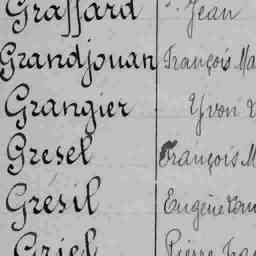 Graffard Jean
Grandjouan François Ma
Grangier Yvon
Gresel François M
Grésil Eugène
Griel Pierre